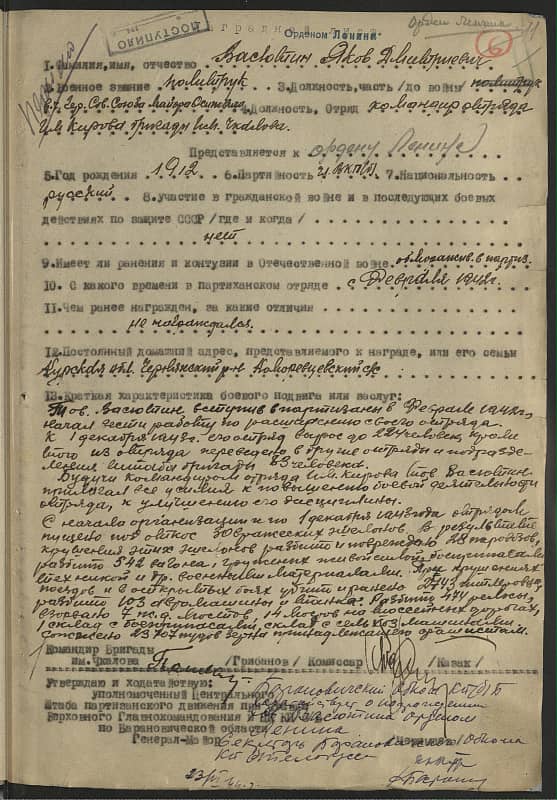 ПОСТУПИЛО
Наградной лист
Орденом Ленина
Орден Ленина
6
1.Фамилия,имя, отчество Васютин Яков Дмитриевич
2.Военное звание политрук 3.Должность,часть /до войны/ политрук
4.Должность, Отряд командир отряда
им Кирова бригады им. Чкалова.
Представляется к ордену Ленина
5.Год рождения 1912 6.Партийность чл. ВКП(б) 7.Национальность
русский 8.Участие в гражданской войне и в последующих боевых
действиях по защите СССР /где и когда/
нет
9.Имеет ли ранения и контузии в Отечественной войне обморожен. в партиз.
10. С какого времени в партизанском отряде с Февраля 1942 г.
11.Чем ранее награжден, за какие отличия
не награждался.
12.Постоянный домашний адрес, представляемого к награде, или его семьи
Курская обл. Чернянский р-н с/с
13.Краткая характеристика боевого подвига или заслуг:
Тов. Васютин вступив в партизаны в Феврале 1942 г.,
начал вести работу по расширению своего отряда.
К 1 декабря 1943 г. его отряд вырос до человек, кроме
этого из отряда переведено в другие отряды и подразде-
ления штаба бригады 83 человека.
Будучи командиром отряда им. Кирова тов Васютин
прилагал все усилия к повышению боевой деятельности
отряда, к улучшению его дисциплины.
С начала организации и по 1 декабря 1943 года отрядом
пущено под откос 30 вражеских эшелонов. В результате
крушения этих эшелонов разбито и повреждено 28 паровозов,
разбито 542 вагона, груженых живой силой,
техникой и др. военными материалами. При крушениях
поездов и в открытых боях убито и ранено гитлеровцев,
разбито 103 автомашины и Разбито 477 рельсы,
взорвано ж.д. мостов, 14 мостов на шоссейных дорогах,
1 склад с боеприпасами, склад с сельхоз машинами.
Сожжено 23707 пудов зерна принадлежащего фашистам.
Командир Бригады
им.Чкалова /Грибанов/ Комиссар /Казак/
Утверждаю и ходатайствую:
уполномоченный Центрального Барановичский Обком КП(б)Б
Штаба партизанского движения при ходатайствует о награждении
Верховного Главнокомандования и Васютина орденом
по Барановической области Ленина
Генерал-Майор /Чернышев/
Секретарь Обкома
КП(б)Белоруссии